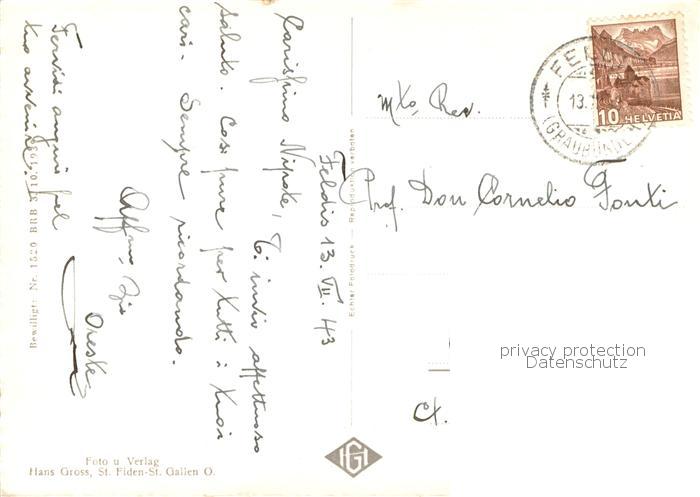 Feldis 13. VII. 43
Carissimo Nipote, Ti invio affettuoso
saluto. Così pure per tutti i tuoi
cari. Sempre ricordando.
Affmo Zio
Oreste
Fervidi auguri pel
tuo avvenire!
Bewilligt: Nr. 1520 BRB
Echter Fotodruck — Reproduktion verboten
Mto Rev.
Prof. Don Cornelio Fonti
Ct.
FEL
13.
(GRAUBÜNDEN
10 HELVETIA
privacy protection
Datenschutz
HG
Foto u Verlag
Hans Gross, St. Fiden-St. Gallen O.